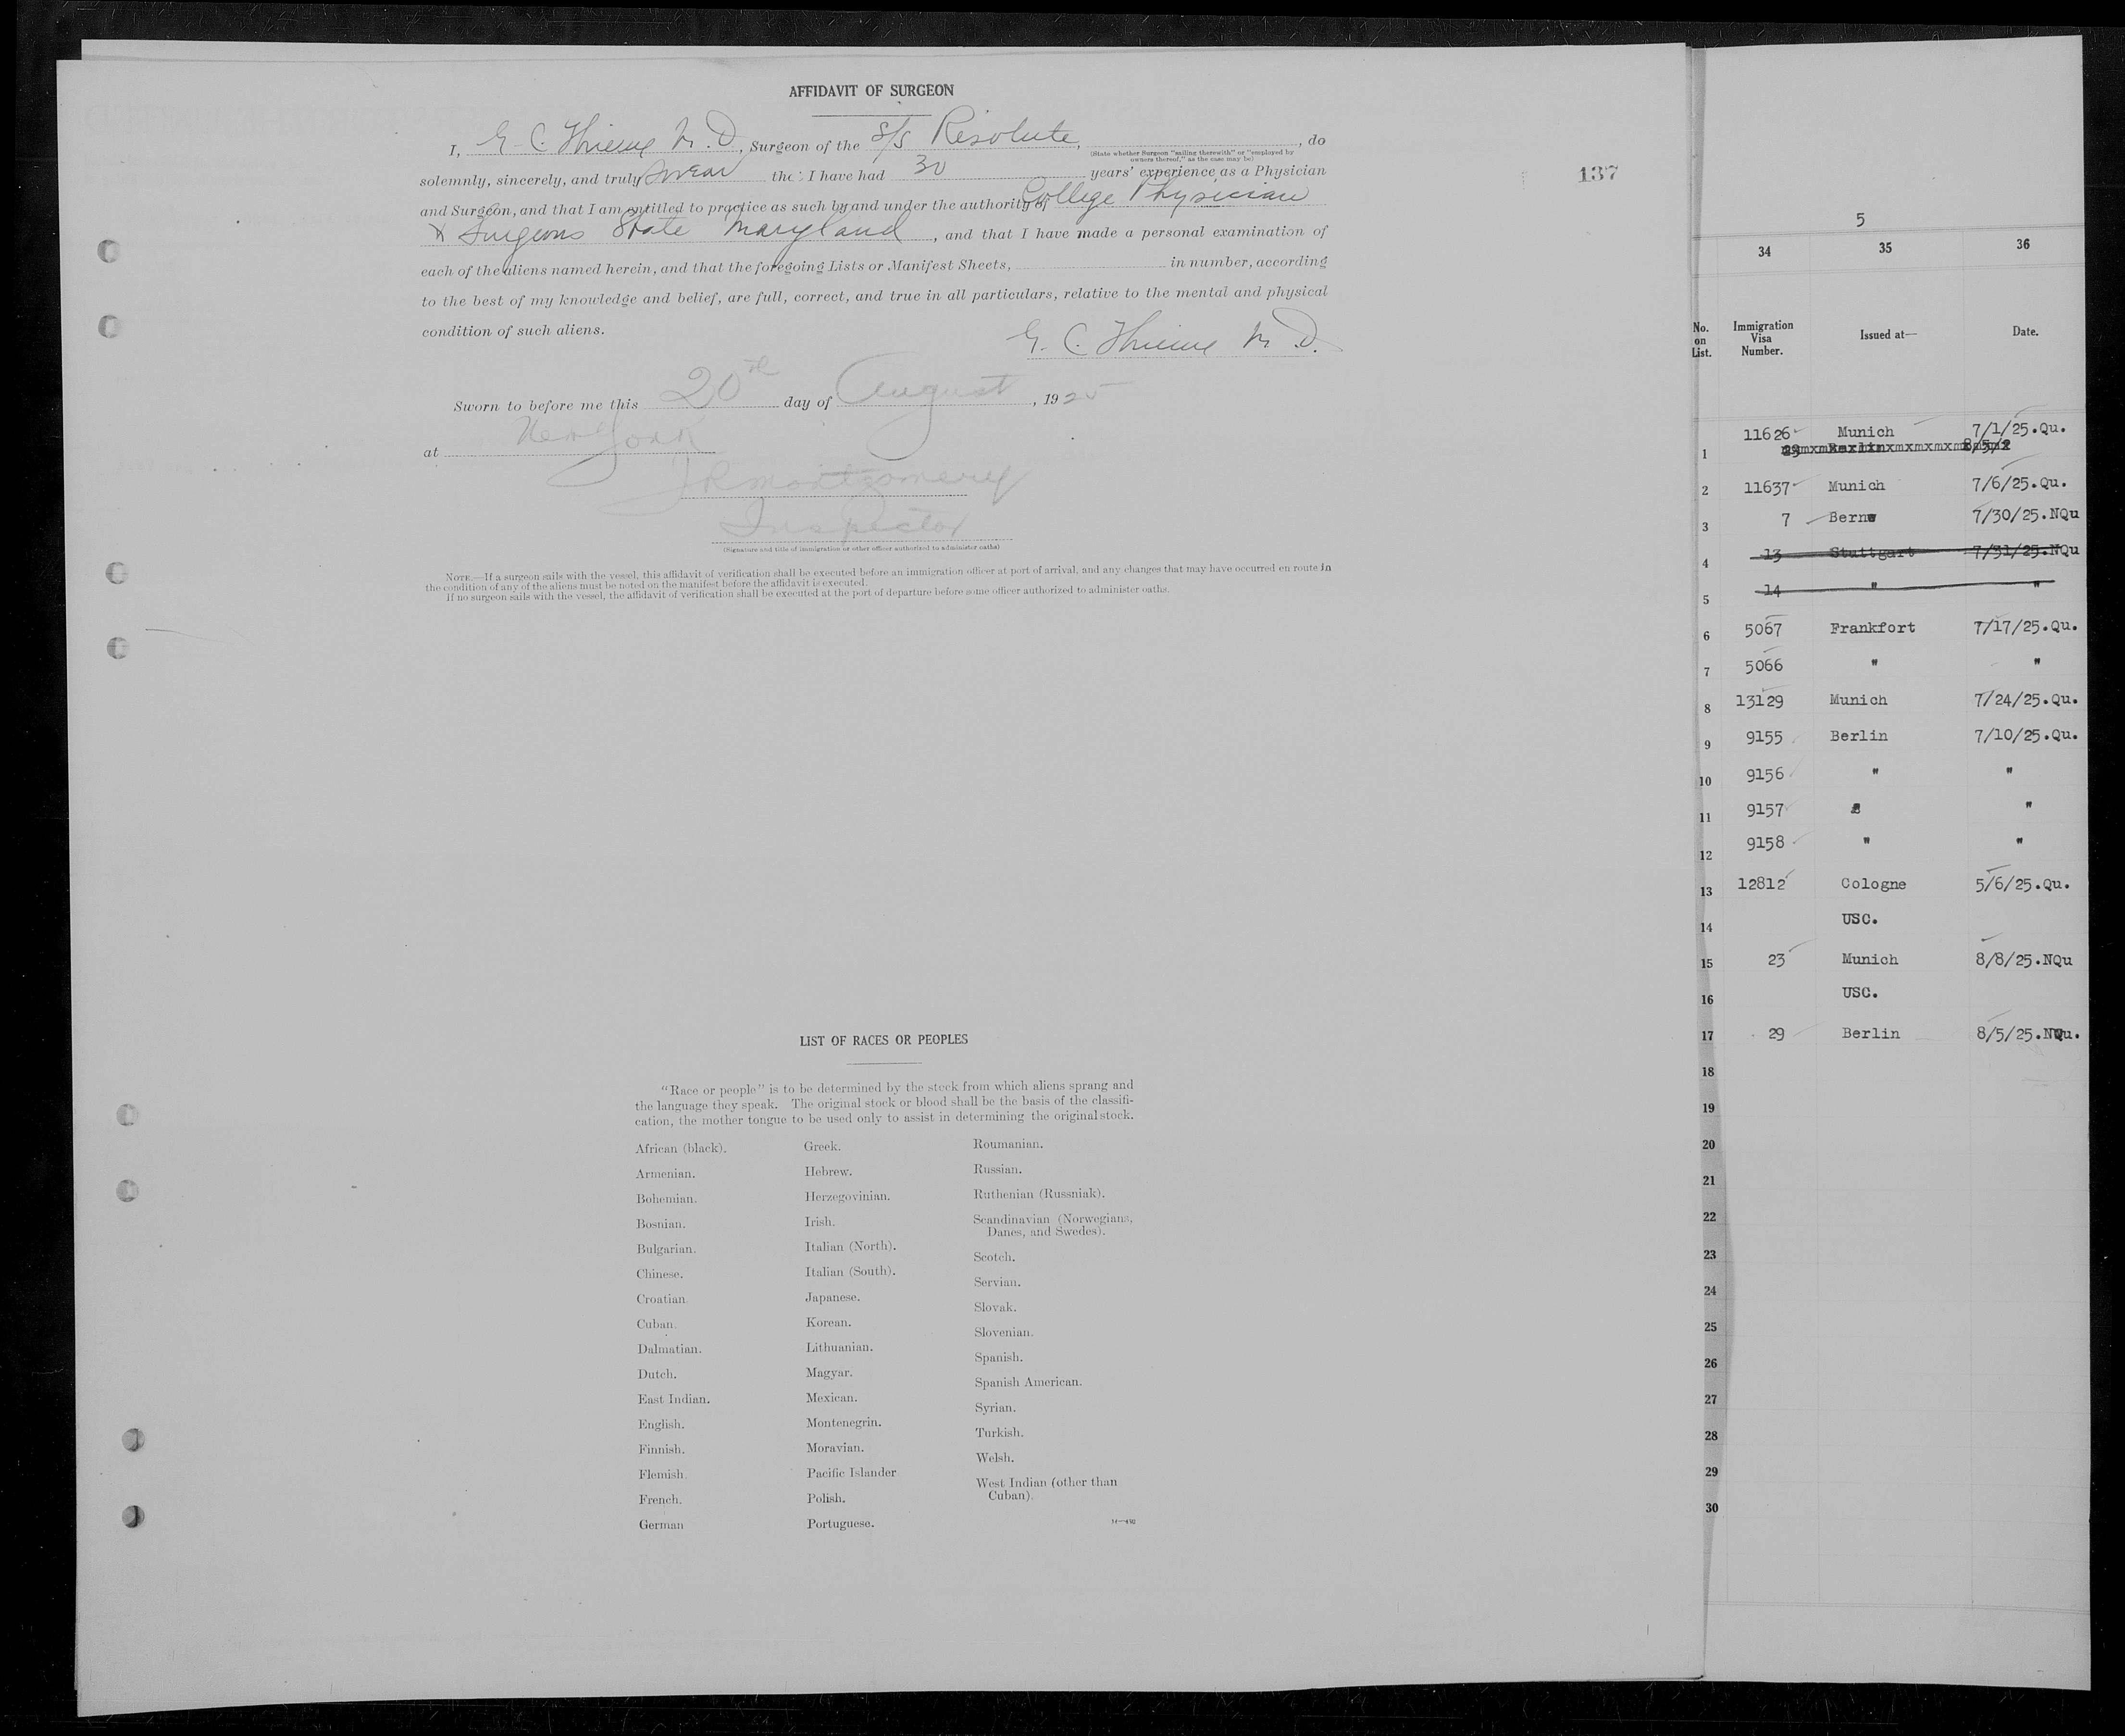 AFFIDAVIT OF SURGEON
I, G. C. Thieme M. D., Surgeon of the S/S Resolute, , do
(State whether Surgeon "sailing therewith" or "employed by
owners thereof," as the case may be)
solemnly, sincerely, and truly swear that I have had 30 years' experience as a Physician
and Surgeon, and that I am entitled to practice as such by and under the authority of College Physician
& Surgeons State Maryland, and that I have made a personal examination of
each of the aliens named herein, and that the foregoing Lists or Manifest Sheets, in number, according
to the best of my knowledge and belief, are full, correct, and true in all particulars, relative to the mental and physical
condition of such aliens.
G. C. Thieme M. D.
Sworn to before me this 20th day of August, 1925
at New York
J R Montgomery
Inspector
(Signature and title of immigration or other officer authorized to administer oaths)
NOTE.—If a surgeon sails with the vessel, this affidavit of verification shall be executed before an immigration officer at port of arrival, and any changes that may have occurred en route in
the condition of any of the aliens must be noted on the manifest before the affidavit is executed.
If no surgeon sails with the vessel, the affidavit of verification shall be executed at the port of departure before some officer authorized to administer oaths.
LIST OF RACES OR PEOPLES
"Race or people" is to be determined by the stock from which aliens sprang and
the language they speak. The original stock or blood shall be the basis of the classifi-
cation, the mother tongue to be used only to assist in determining the original stock.
African (black).
Armenian.
Bohemian.
Bosnian.
Bulgarian.
Chinese.
Croatian.
Cuban.
Dalmatian.
Dutch.
East Indian.
English.
Finnish.
Flemish.
French.
German
Greek.
Hebrew.
Herzegovinian.
Irish.
Italian (North).
Italian (South).
Japanese.
Korean.
Lithuanian.
Magyar.
Mexican.
Montenegrin.
Moravian.
Pacific Islander
Polish.
Portuguese.
Roumanian.
Russian.
Ruthenian (Russniak).
Scandinavian (Norwegians,
Danes, and Swedes).
Scotch.
Servian.
Slovak.
Slovenian.
Spanish.
Spanish American.
Syrian.
Turkish.
Welsh.
West Indian (other than
Cuban).
137
5
34 35 36
No. on List. Immigration Visa Number. Issued at— Date.
1 11626 Munich 7/1/25.Qu.
29 Berlin 8/5/2
2 11637 Munich 7/6/25.Qu.
3 7 Berne 7/30/25.NQu
4 13 Stuttgart 7/31/25.NQu
5 14 " "
6 5067 Frankfort 7/17/25.Qu.
7 5066 " "
8 13129 Munich 7/24/25.Qu.
9 9155 Berlin 7/10/25.Qu.
10 9156 " "
11 9157 "
12 9158 " "
13 12812 Cologne 5/6/25.Qu.
14 USC.
15 23 Munich 8/8/25.NQu
16 USC.
17 29 Berlin 8/5/25.NQu.
18
19
20
21
22
23
24
25
26
27
28
29
30